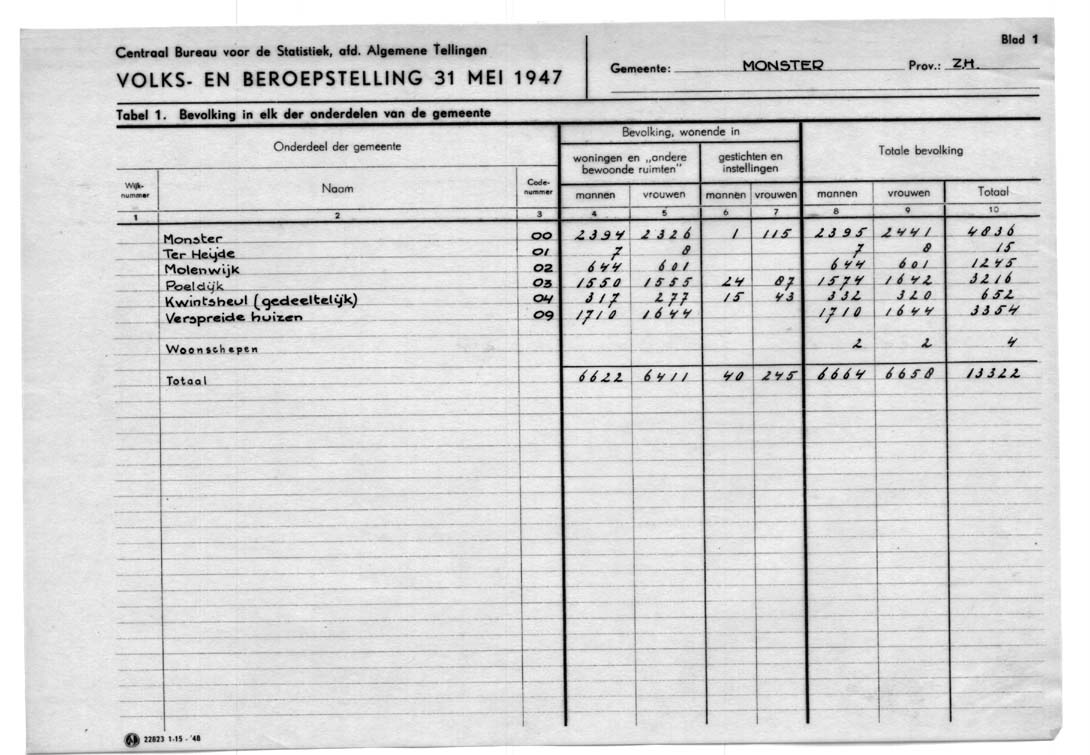 Blad 1
Centraal Bureau voor de Statistiek, afd. Algemene Tellingen
VOLKS- EN BEROEPSTELLING 31 MEI 1947
Gemeente: MONSTER Prov.: Z.H.
Tabel 1. Bevolking in elk der onderdelen van de gemeente
Onderdeel der gemeente Bevolking, wonende in Totale bevolking
woningen en „andere bewoonde ruimten" gestichten en instellingen
Wijk-nummer Naam Code-nummer mannen vrouwen mannen vrouwen mannen vrouwen Totaal
1 2 3 4 5 6 7 8 9 10
Monster 00 2394 2326 1 115 2395 2441 4836
Ter Heyde 01 7 8 7 8 15
Molenwijk 02 644 601 644 601 1245
Poeldijk 03 1550 1555 24 87 1574 1642 3216
Kwintsheul (gedeeltelijk) 04 317 277 15 43 332 320 652
Verspreide huizen 09 1710 1644 1710 1644 3354
Woonschepen 2 2 4
Totaal 6622 6411 40 245 6664 6658 13322
22823 1-15 - '48